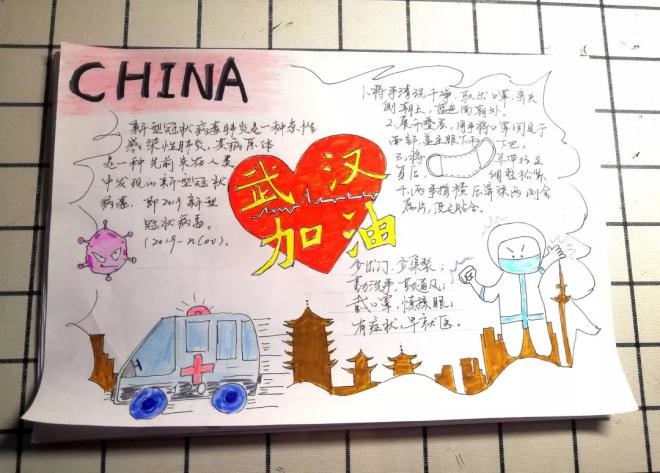 CHINA
新型冠状病毒肺炎是一种急性
感染性肺炎，其病原体
是一种先前未在人类
中发现的新型冠状
病毒，即2019新型
冠状病毒。
(2019-nCoV).
武汉
加油
1.将手清洗干净，取出口罩，鼻夹
侧朝上，蓝色面朝外。
2.展开叠层，用手将口罩固定于
面部
下巴。
3.将
耳
4.两手指按压鼻夹两侧金
属片，使之贴合。
少出门，少集聚；
勤洗手，勤通风；
戴口罩，慎揉眼；
有症状，早就医。